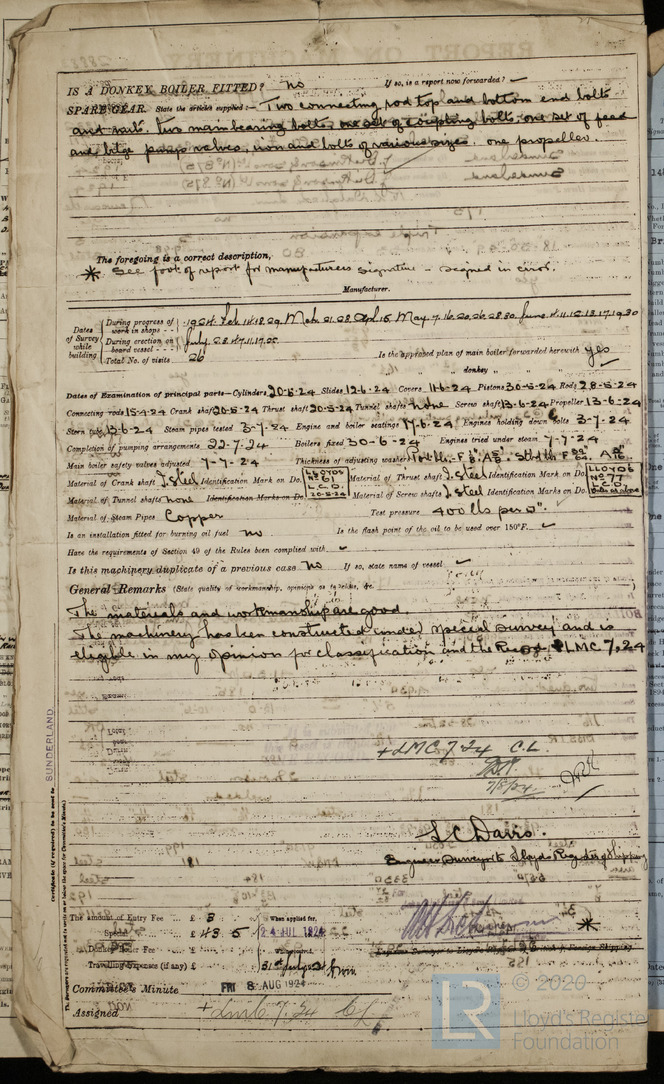 IS A DONKEY BOILER FITTED? no If so, is a report now forwarded? ✓
SPARE GEAR. State the articles supplied:— Two connecting rod top and bottom end bolts
and nuts. Two main bearing bolts, one set of coupling bolts, one set of feed
and bilge pumps valves, iron and bolts of various sizes. one propeller.
The foregoing is a correct description,
* See foot of report for manufacturers signature – signed in error.
Manufacturer.
Dates of Survey while building
During progress of work in shops - - 1924 Feb 14.18.29. Mch. 21.28. Apl. 15. May 7.16.20.26.28.30. June 4.11.12.13.17.19.30
During erection on board vessel - - - July 2.3.4.7.11.17.22.
Total No. of visits 26 Is the approved plan of main boiler forwarded herewith yes
" " " donkey " " "
Dates of Examination of principal parts—Cylinders 20-5-24 Slides 12-6-24 Covers 11-6-24 Pistons 30-5-24 Rods 28-5-24
Connecting rods 15-4-24 Crank shaft 20-5-24 Thrust shaft 20-5-24 Tunnel shafts none Screw shaft 13-6-24 Propeller 13-6-24
Stern tube 13-6-24 Steam pipes tested 3-7-24 Engine and boiler seatings 17-6-24 Engines holding down bolts 3-7-24
Completion of pumping arrangements 22.7.24 Boilers fixed 30-6-24 Engines tried under steam 7-7-24
Main boiler safety valves adjusted 7-7-24 Thickness of adjusting washers
Material of Crank shaft I. steel Identification Mark on Do. LLOYDS No 61 L.C.D. 20-5-24 Material of Thrust shaft I. steel Identification Mark on Do. LLOYDS No 77 L.C.D.
Material of Tunnel shafts none Identification Marks on Do. Material of Screw shafts I. steel Identification Marks on Do.
Material of Steam Pipes Copper Test pressure 400 lbs per □".
Is an installation fitted for burning oil fuel no Is the flash point of the oil to be used over 150°F. ✓
Have the requirements of Section 49 of the Rules been complied with ✓
Is this machinery duplicate of a previous case No If so, state name of vessel ✓
General Remarks (State quality of workmanship, opinions as to class, &c.
The materials and workmanship are good.
The machinery has been constructed under special survey and is
eligible in my opinion for classification and the Record, +LMC 7,24
+LMC 7.24 C.L.
7/8/24
L.C. Davis.
Engineer Surveyor to Lloyds Register of Shipping
Certificate (if required) to be sent to SUNDERLAND
The amount of Entry Fee .. £ 3 When applied for,
Special .. £ 43 5 24 JUL 1924
Donkey Boiler Fee .. £
Travelling Expenses (if any) £ 31st July 24
*
Committee's Minute FRI 8 AUG 1924
Assigned + LMC 7.24 CL
© 2020
LR
Lloyd's Register
Foundation